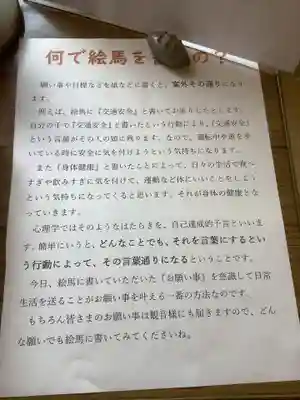 何で絵馬を の？
願い事や目標などを紙などに書くと、案外その通りになり
ます。
例えば、絵馬に『交通安全』と書いてお祈りしたとします。
自分の手で『交通安全』と書いたという行動により、『交通安全』
という言葉がその人の頭に残ります。なので、運転中や道を歩
いている時に安全に気を付けようという気持ちになります。
また『身体健康』と書いたことによって、日々の生活で食べ
すぎや飲みすぎに気を付けて、運動など体にいいことをしよう
という気持ちになってくると思います。それが身体の健康とな
っていきます。
心理学ではそのようなはたらきを、自己達成的予言といいま
す。簡単にいうと、どんなことでも、それを言葉にするとい
う行動によって、その言葉通りになるということです。
今日、絵馬に書いていただいた『お願い事』を意識して日常
生活を送ることがお願い事を叶える一番の方法なのです。
もちろん皆さまのお願い事は観音様にも届きますので、どん
な願いでも絵馬に書いてみてくださいね。